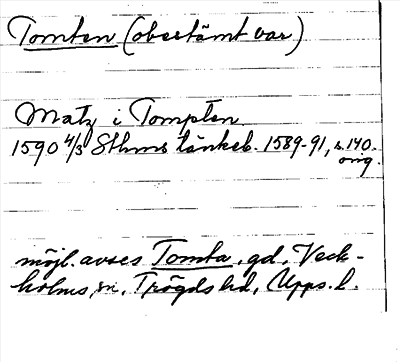 Tomten (obestämt var)
Matz i Tompten
1590 4/3 Sthms tänkeb. 1589-91, s. 140.
orig.
möjl. avses Tomta, gd, Veck-
holms sn, Trögds hd, Upps. l.